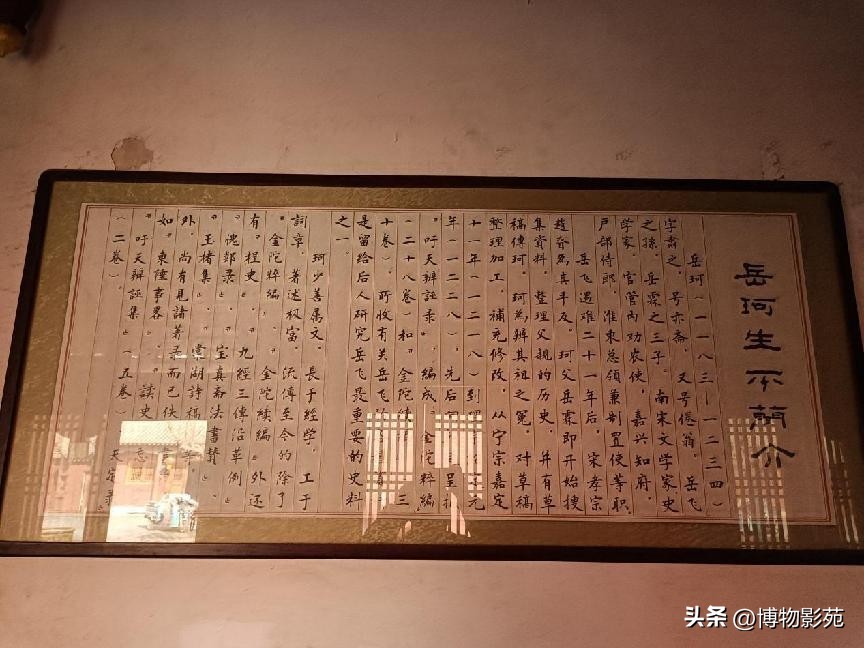 岳珂生平简介
岳珂(一一八三—一二三四)
字肃之，号亦斋，又号倦翁，岳飞
之孙，岳霖之三子。南宋文学家史
学家，官管内劝农使，嘉兴知府，
户部侍郎，淮东总领兼制置使等职。
岳飞遇难二十一年后，宋孝宗
赵昚为其平反，珂父岳霖即开始搜
集资料，整理父亲的历史，并有草
稿傳珂。珂為辨其祖之冤，对草稿
整理加工，补充修改，从宁宗嘉定
十一年(一二一八)到理宗 元
年(一二二八)，先后 呈报
《吁天辨誣录》，编成《金陀粹编》
(二十八卷)和《金陀续编》(三
十卷)，所收有关岳飞
是留给后人研究岳飞最重要的史料
之一。
珂少善属文，長于经学，工于
詞章，著述极富，流傳至今的除了
《金陀粹编》、《金陀续编》外还
有《桯史》、《九經三傳沿革例》
《愧郯录》、《宝真斋法書赞》、
《玉楮集》、《棠湖詩稿》
外尚有見諸著录而已佚
如《東陲事畧》、《讀史 忘》
《吁天辨誣集》(五卷)、《天定录》
(二卷)。
头条 @博物影苑